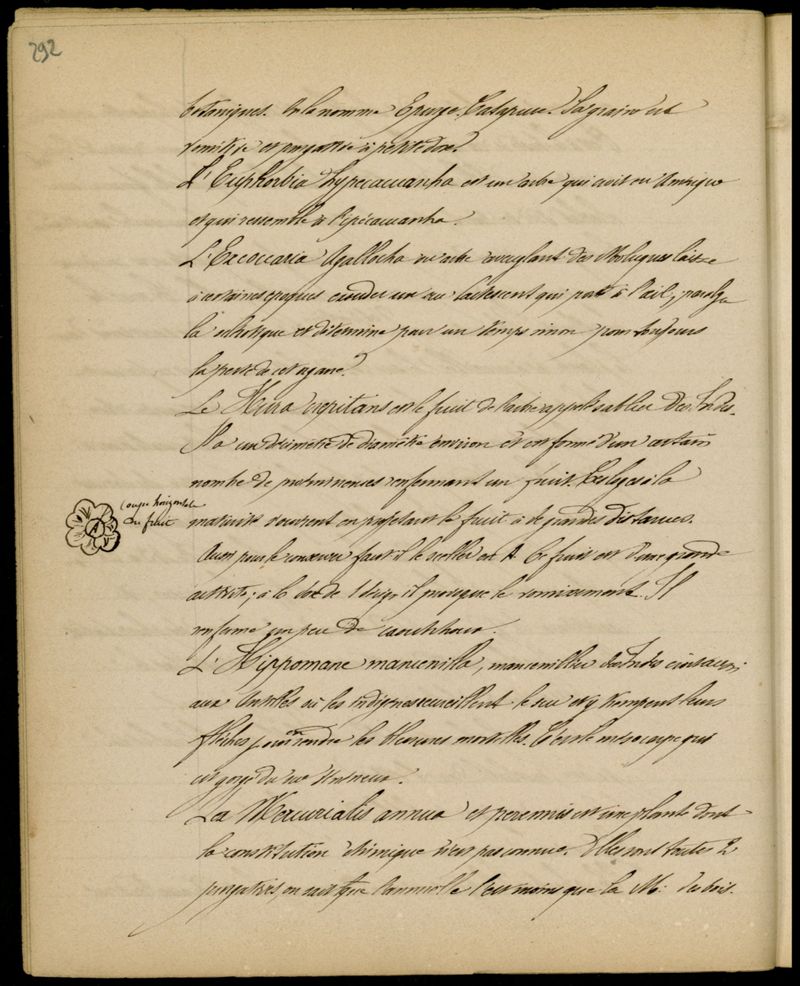 292
botaniques. On la nomme Epurge, Catapuce. Sa graine est
vomitive et purgative à petite dose.
L'Euphorbia Hypecacuanha est un arbre qui croit en Amérique
et qui ressemble à l'ipécacuanha.
L'Excoecaria Agallocha ou arbre aveuglant des Moluques laisse
à certaines époques couler un suc lactescent qui porté à l'œil, paralyse
la sclérotique et détermine pour un temps sinon pour toujours
la perte de cet organe.
Le Hura crepitans est le fruit de l'arbre appelé sablier des Indes.
Il a un décimètre de diamètre environ et est formé d'un certain
nombre de proéminences renfermant un fruit. Ces loges à la
maturité s'ouvrent en projetant le fruit à de grandes distances.
Coupe horizontale
du fruit
A
Aussi pour le conserver faut il le sceller en A. Ce fruit est d'une grande
activité; à la dose de 1 il provoque le vomissement. Il
renferme un peu de caoutchouc.
L'Hippomane mancenilla, mancenillier des Indes croit aussi
aux Antilles où les indigènes recueillent le suc et y trempent leurs
flèches pour rendre les blessures mortelles. C'est le mésocarpe qui
est gorgé du suc vénéneux.
La Mercurialis annua et perennis est une plante dont
la constitution chimique n'est pas connue. Elles sont toutes 2
purgatives, on sait que l'annuelle l'est moins que la M. des bois.